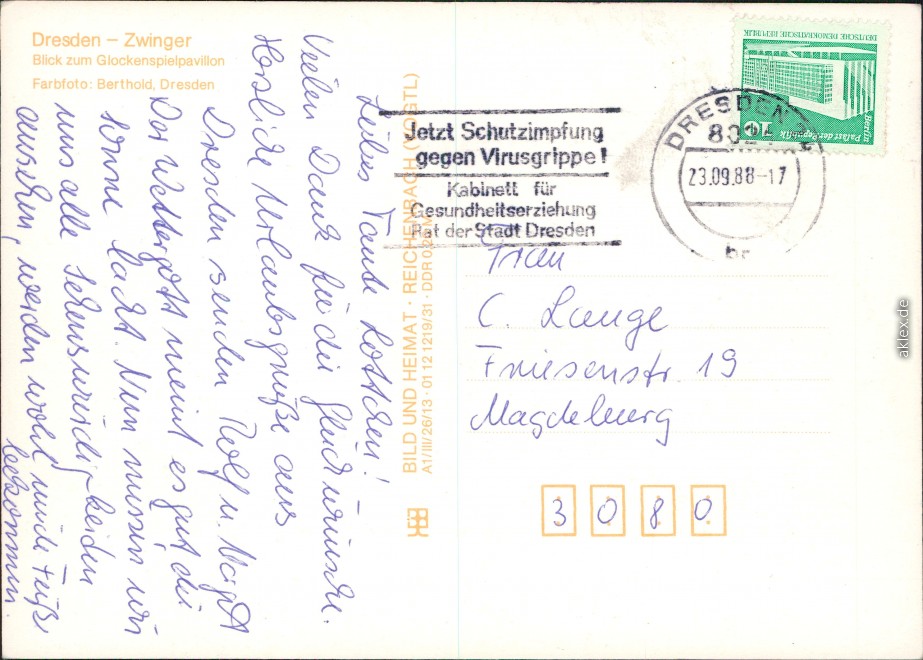 Dresden – Zwinger
Blick zum Glockenspielpavillon
Farbfoto: Berthold, Dresden
Liebes Tante Lottchen!
Vielen Dank für die Glückwünsche.
Herzliche Urlaubsgrüße aus
Dresden senden Rolf u. Margot
Der Wettergott meint es gut die
Sonne lacht. Nun müssen wir
uns alle Sehenswürdigkeiden
ansehen, werden wohl müde Füße
bekommen.
BILD UND HEIMAT · REICHENBACH (VOGTL)
A1/III/26/13 · 01 12 1219/31 · DDR
Jetzt Schutzimpfung
gegen Virusgrippe!
Kabinett für
Gesundheitserziehung
Rat der Stadt Dresden
DRESDEN
23.09.88-17
br
DEUTSCHE DEMOKRATISCHE REPUBLIK
Berlin
Palast der Republik
10
Frau
C. Lange
Friesenstr. 19
Magdeburg
3080
aklex.de